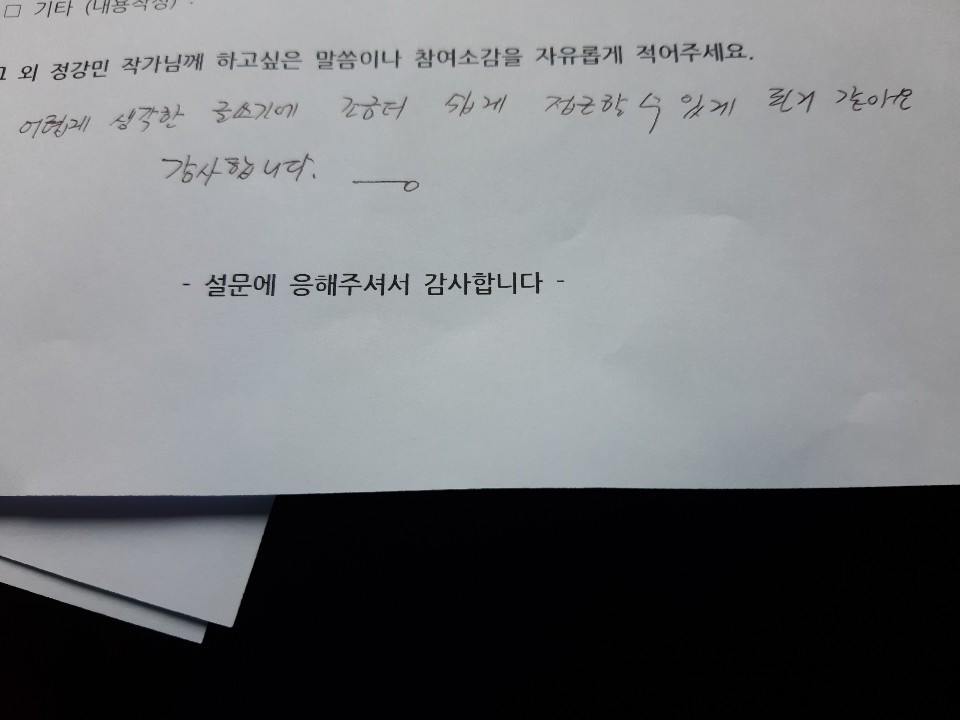 □ 기타 (내용작성) :
그 외 정강민 작가님께 하고싶은 말씀이나 참여소감을 자유롭게 적어주세요.
어렵게 생각한 글쓰기에 조금더 쉽게 접근할 수 있게 된거 같아요
감사합니다.
- 설문에 응해주셔서 감사합니다 -